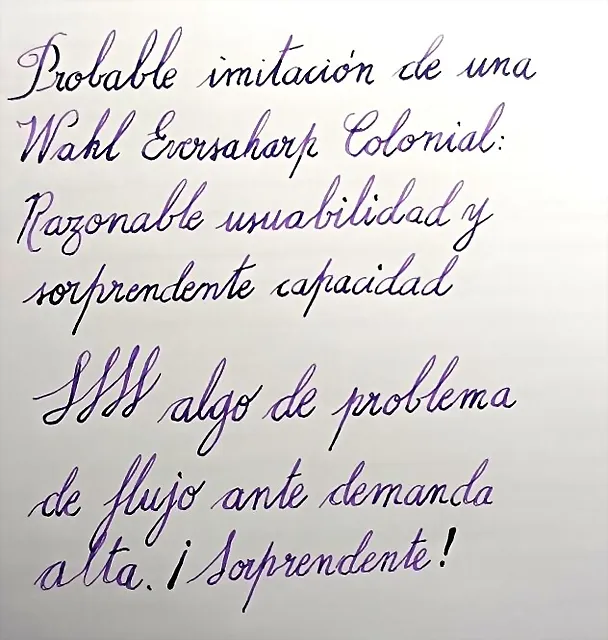 Probable imitación de una
Wahl Eversaharp Colonial:
Razonable usuabilidad y
sorprendente capacidad
SSSS algo de problema
de flujo ante demanda
alta. ¡Sorprendente!